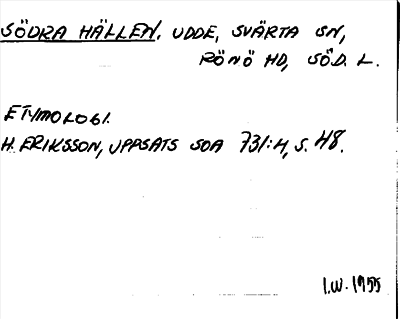 SÖDRA HÄLLEN. UDDE, SVÄRTA SN,
RÖNÖ HD, SÖD. L.
ETYMOLOGI.
H. ERIKSSON, UPPSATS SOA 731:4, S. 48.
I.W. 1955